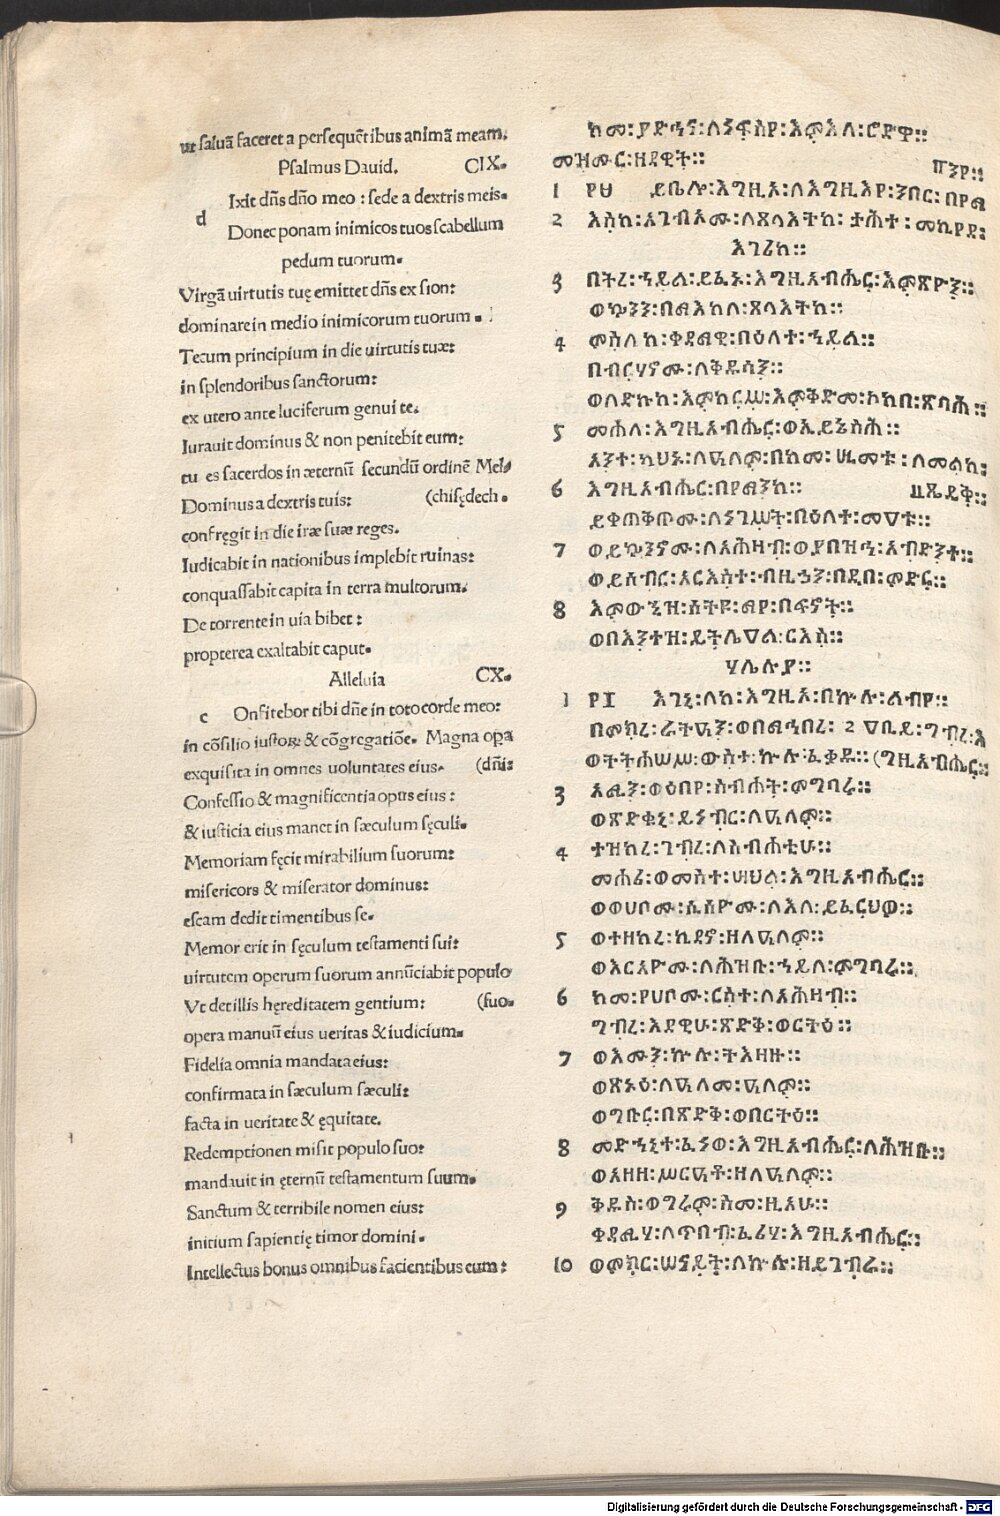 ut saluã faceret a persequẽtibus animã meam.
Psalmus Dauid. CIX.
d Ixit dñs dño meo : sede a dextris meis.
Donec ponam inimicos tuos scabellum
pedum tuorum.
Virgã uirtutis tuę emittet dñs ex sion:
dominare in medio inimicorum tuorum .
Tecum principium in die uirtutis tuæ:
in splendoribus sanctorum:
ex utero ante luciferum genui te.
Iurauit dominus & non penitebit eum:
tu es sacerdos in æternũ secundũ ordinẽ Mel
Dominus a dextris tuis: (chisędech .
confręgit in die iræ suæ reges.
Iudicabit in nationibus implebit ruinas:
conquassabit capita in terra multorum.
De torrente in uia bibet :
propterea exaltabit caput.
Alleluia CX.
c Onfitebor tibi dñe in toto corde meo:
in cõsilio iustoꝝ & cõgregatiõe. Magna opa
exquisita in omnes uoluntates eius. (dñi:
Confessio & magnificentia opus eius :
& iusticia eius manet in sæculum sęculi.
Memoriam fęcit mirabilium suorum:
misericors & miserator dominus:
escam dedit timentibus se.
Memor erit in sęculum testamenti sui:
uirtutem operum suorum annũciabit populo
Vt det illis hęreditatem gentium: (suo.
opera manuũ eius ueritas & iudicium.
Fidelia omnia mandata eius:
confirmata in sæculum sæculi:
facta in ueritate & ęquitate.
Redemptionen misit populo suo:
mandauit in ęternũ testamentum suum.
Sanctum & terribile nomen eius:
initium sapientię timor domini.
Intellectus bonus omnibus facientibus eum:
ከመ፡ ያድኅና፡ ለነፍስየ፡ እምእለ፡ ሮድዋ።
መዝሙር፡ ዘዳዊት።
1 ፻፱ ይቤሎ፡ እግዚእ፡ ለእግዚእየ፡ ንበር፡ በየማ
2 እስከ፡ አገብኦሙ፡ ለጸላእትከ፡ ታሕተ፡ መከየደ፡
እገሪከ።
3 በትረ፡ ኀይል፡ ይፌኑ፡ እግዚአብሔር፡ እምጽዮን።
ወኰንን፡ በማእከለ፡ ጸላእትከ።
4 ምስለከ፡ ቀዳማዊ፡ በዕለተ፡ ኀይል።
በብርሃኖሙ፡ ለቅዱሳን።
ወለድኩከ፡ እምከርሥ፡ እምቅድመ፡ ኮከበ፡ ጽባሕ።
5 መሐለ፡ እግዚአብሔር፡ ወኢይኔስሕ።
አንተ፡ ካህኑ፡ ለዓለም፡ በከመ፡ ሢመቱ፡ ለመልከ፡
6 እግዚአብሔር፡ በየማንከ። ጼዴቅ።
ይቀጠቅጦሙ፡ ለነገሥት፡ በዕለተ፡ መዐቱ።
7 ወይኴንኖሙ፡ ለአሕዛብ፡ ወያበዝኅ፡ አብድንተ።
ወይሰብር፡ አርእስተ፡ ብዙኃን፡ በዲበ፡ ምድር።
8 እምውኂዝ፡ ሰትዩ፡ ማየ፡ በፍኖት።
ወበእንተዝ፡ ይትሌዐል፡ ርእስ።
ሃሌሉያ።
1 ፻፲ እገኒ፡ ለከ፡ እግዚኦ፡ በኵሉ፡ ልብየ።
በምክረ፡ ራትዓን፡ ወበማኅበረ፡ 2 ዐቢይ፡ ግብረ፡ እ
ወትትሐሠሥ፡ ውስተ፡ ኵሉ፡ ፈቀዱ። (ግዚአብሔር።
3 አሚን፡ ወዕበየ፡ ስብሐት፡ ምግባሩ።
ወጽድቁኒ፡ ይነብር፡ ለዓለም።
4 ተዝካረ፡ ገብረ፡ ለስብሐቲሁ።
መሐሪ፡ ወመስተሣህል፡ እግዚአብሔር።
ወወሀቦሙ፡ ሲሳዮሙ፡ ለእለ፡ ይፈርህዎ።
5 ወተዘከረ፡ ኪዳኖ፡ ዘለዓለም።
ወአርአዮሙ፡ ለሕዝቡ፡ ኀይለ፡ ምግባሩ።
6 ከመ፡ የሀቦሙ፡ ርስተ፡ ለአሕዛብ።
ግብረ፡ እደዊሁ፡ ጽድቅ፡ ወርትዕ።
7 ወእሙን፡ ኵሉ፡ ትእዛዙ።
ወጽኑዕ፡ ለዓለመ፡ ዓለም።
ወግቡር፡ በጽድቅ፡ ወበርትዕ።
8 መድኀኒተ፡ ፈነወ፡ እግዚአብሔር፡ ለሕዝቡ።
ወአዘዘ፡ ሥርዓቶ፡ ዘለዓለም።
9 ቅዱስ፡ ወግሩም፡ ስመ፡ ዚአሁ።
ቀዳሚሃ፡ ለጥበብ፡ ፈሪሃ፡ እግዚአብሔር።
10 ወምክር፡ ሠናይት፡ ለኵሉ፡ ዘይገብራ።
Digitalisierung gefördert durch die Deutsche Forschungsgemeinschaft - DFG